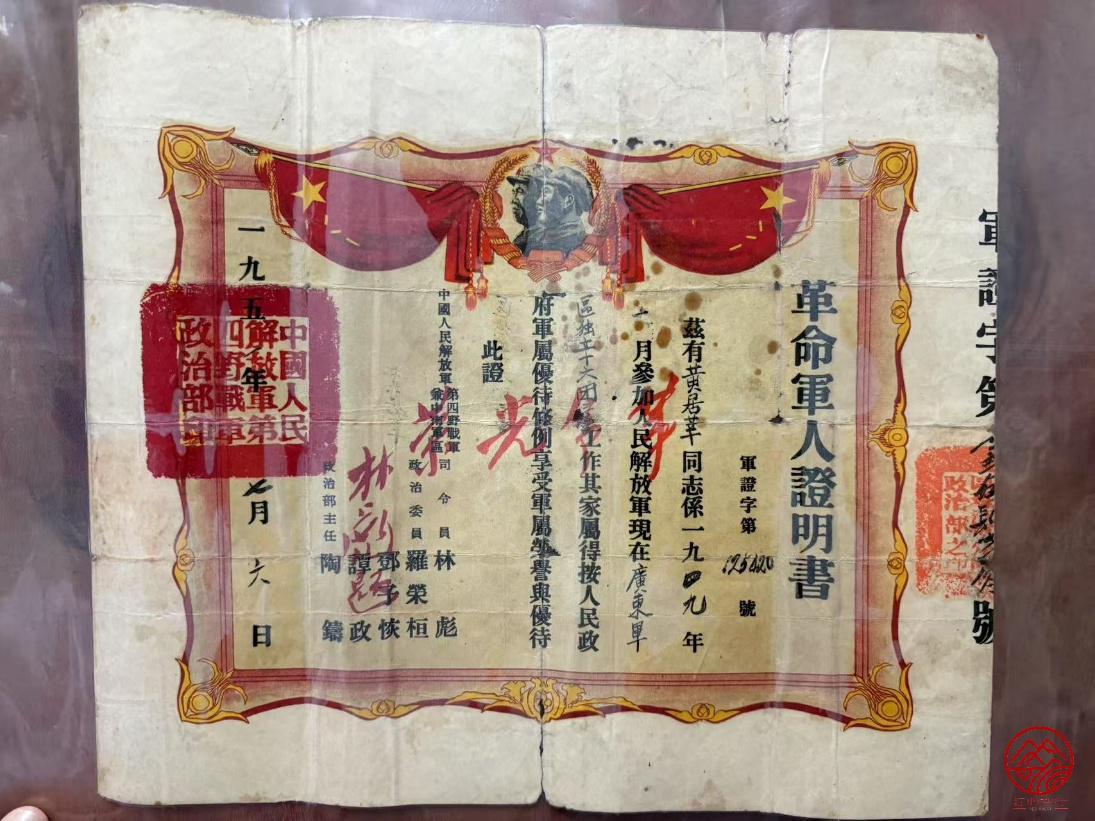 軍證字第
號
革命軍人證明書
軍證字第 195120 號
茲有黃居華同志係一九四九年
月參加人民解放軍現在廣東軍
區独立十六团 工作其家屬得按人民政
府軍屬優待條例享受軍屬榮譽與優待
此證
光榮
中國人民解放軍第四野戰軍兼中南軍區司令員 林彪
政治委員 羅榮桓
鄧子恢
譚政
政治部主任 陶鑄
林彪題
一九五 年七月六日
中國人民解放軍第四野戰軍政治部印
政治部之印